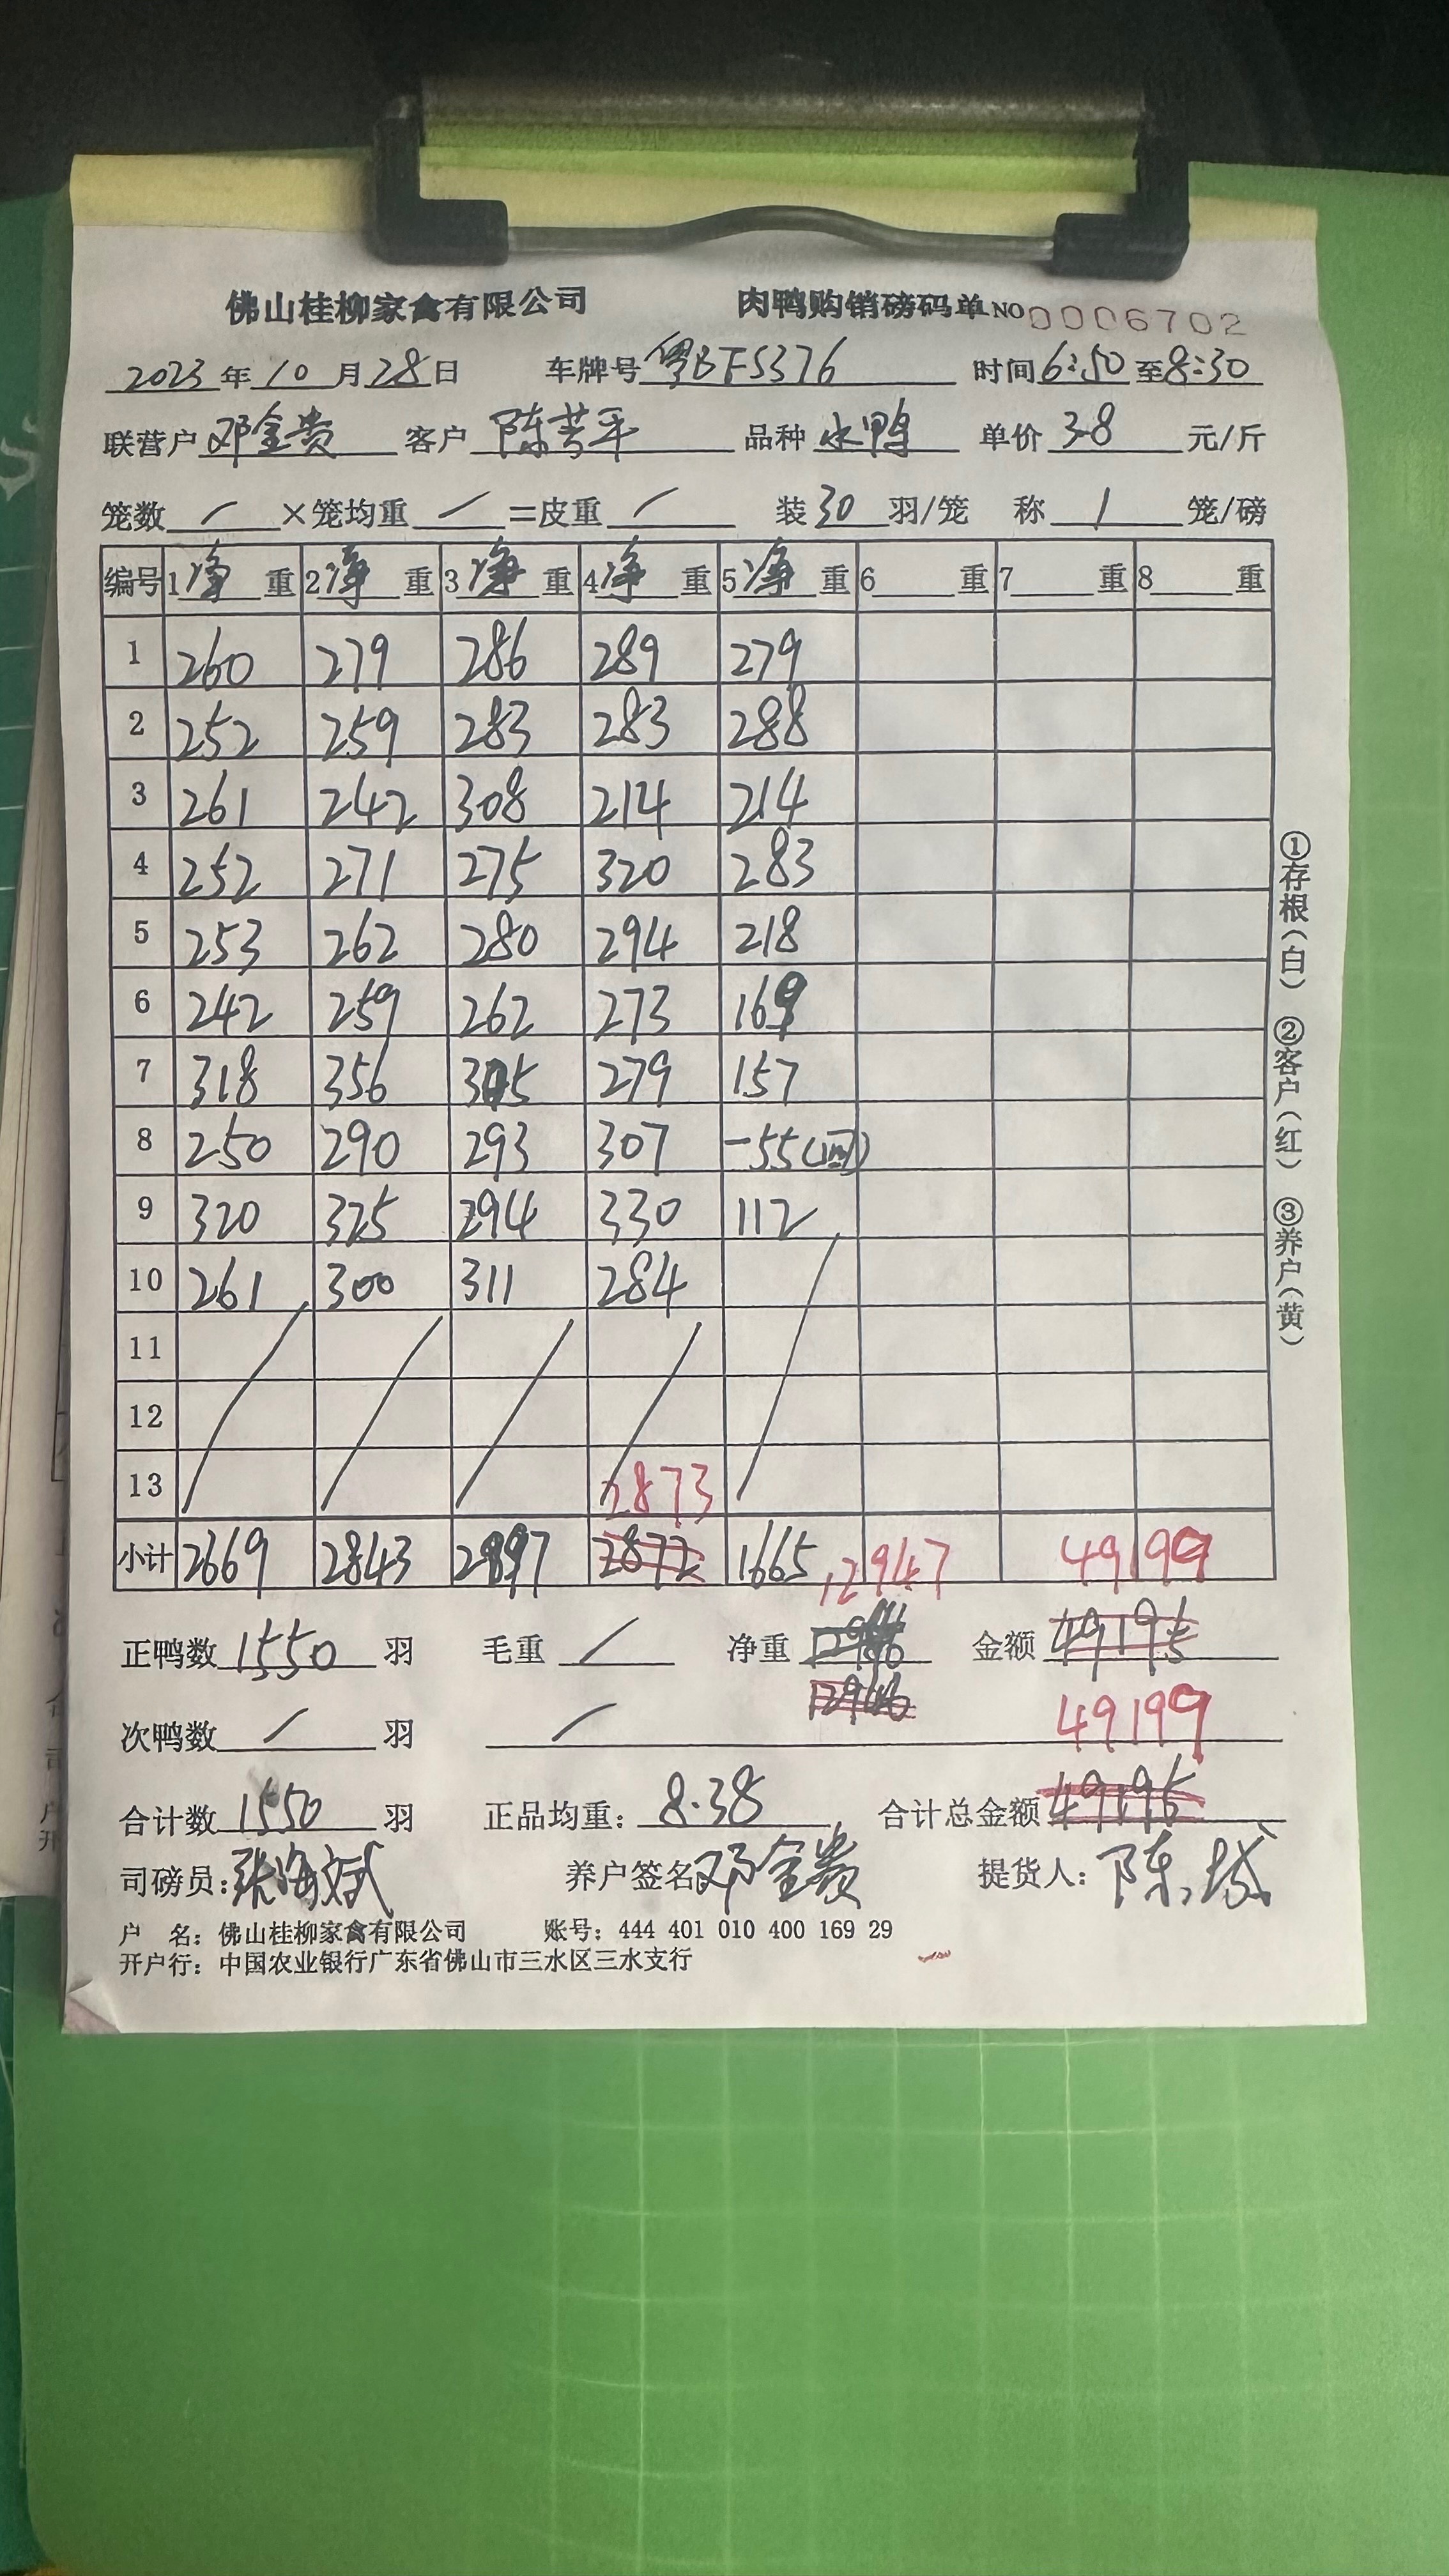 佛山桂柳家禽有限公司 肉鸭购销磅码单 NO 0006702
2023年10月28日 车牌号 粤BF5376 时间6:50至8:30
联营户 邓金贵 客户 陈芳平 品种 水鸭 单价 3.8 元/斤
笼数 / ×笼均重 / =皮重 / 装 30 羽/笼 称 1 笼/磅
编号 1净重 2净重 3净重 4净重 5净重 6 重 7 重 8 重
1 260 279 286 289 279
2 252 259 283 283 288
3 261 242 308 214 214
4 252 271 275 320 283
5 253 262 280 294 218
6 242 259 262 273 169
7 318 356 305 279 157
8 250 290 293 307 -55
9 320 325 294 330 112
10 261 300 311 284
11
12
13 2873
小计 2669 2843 2897 2872 1665 12947 49199
正鸭数 1550 羽 毛重 / 净重 12946 金额 49195
12946
次鸭数 / 羽 / 49199
合计数 1550 羽 正品均重: 8.38 合计总金额 49195
司磅员: 张海斌 养户签名 邓金贵 提货人: 陈
户 名: 佛山桂柳家禽有限公司 账号: 444 401 010 400 169 29
开户行: 中国农业银行广东省佛山市三水区三水支行
①存根(白) ②客户(红) ③养户(黄)